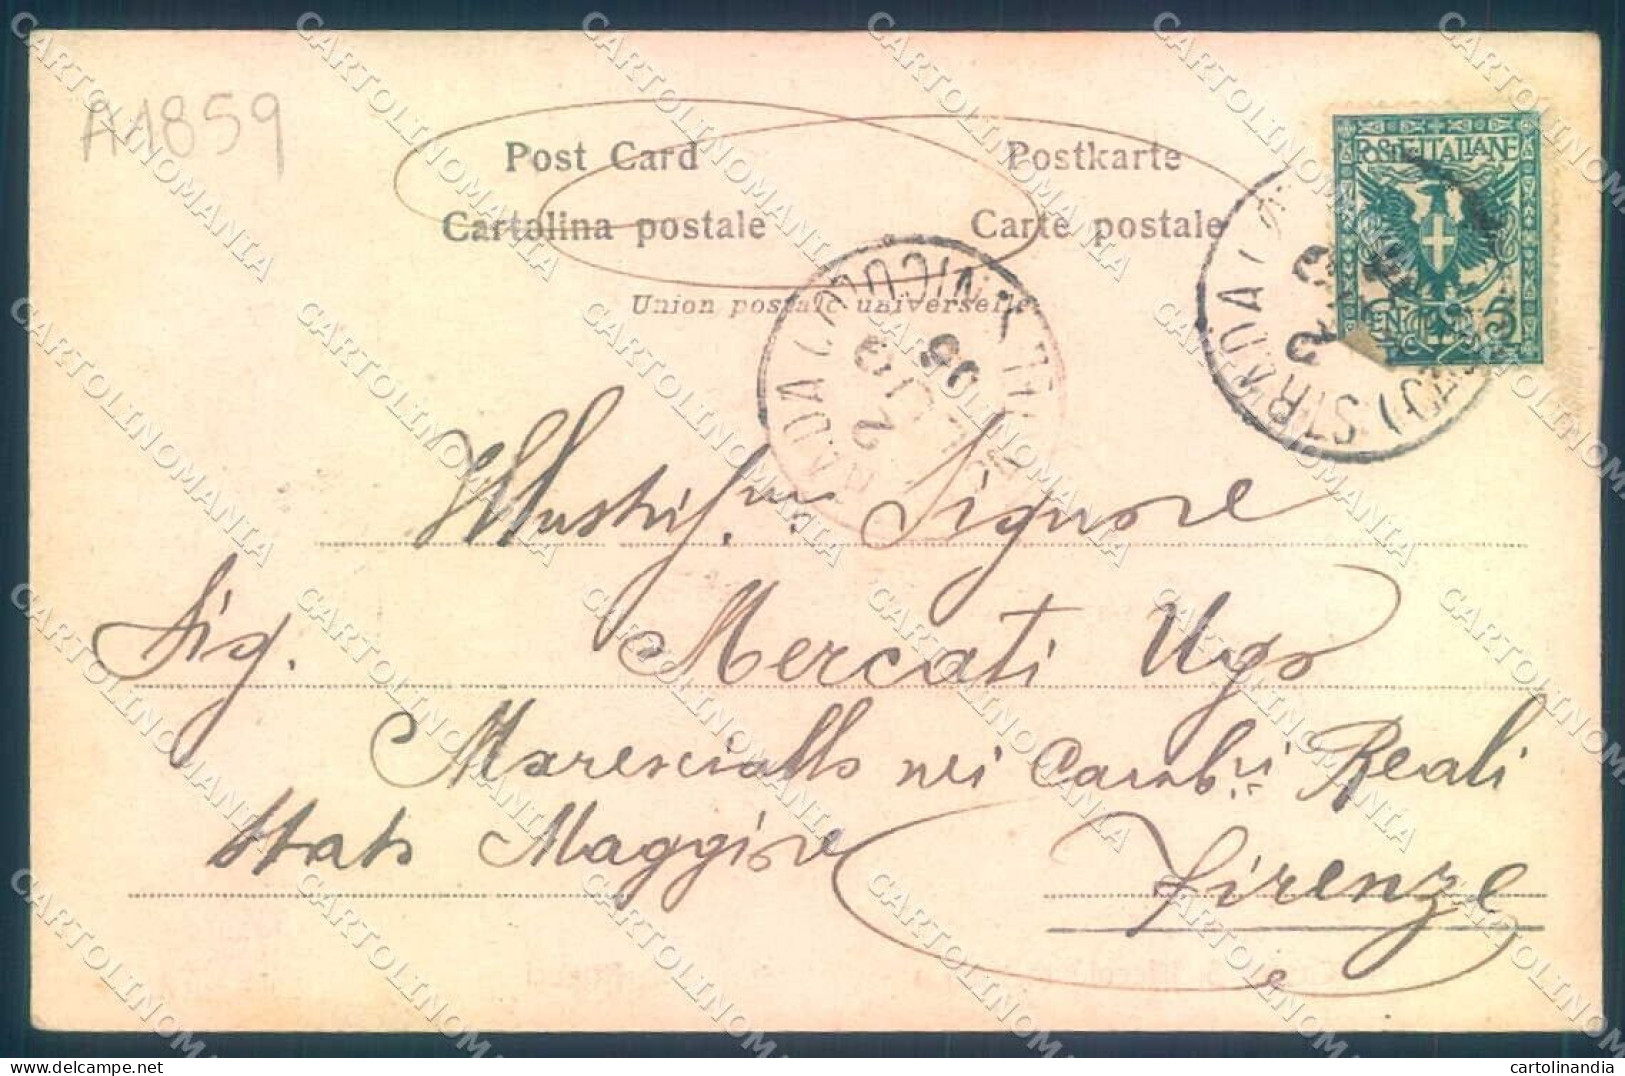 A1859
Post Card Postkarte
Cartolina postale Carte postale
Union postale universelle
POSTE ITALIANE
CEN. 5
STRADA
Illustrif.mo Signore
Sig. Mercati Ugo
Maresciallo nei Carab.ri Reali
Stato Maggiore
Firenze
CARTOLINOMANIA
cartolinandia